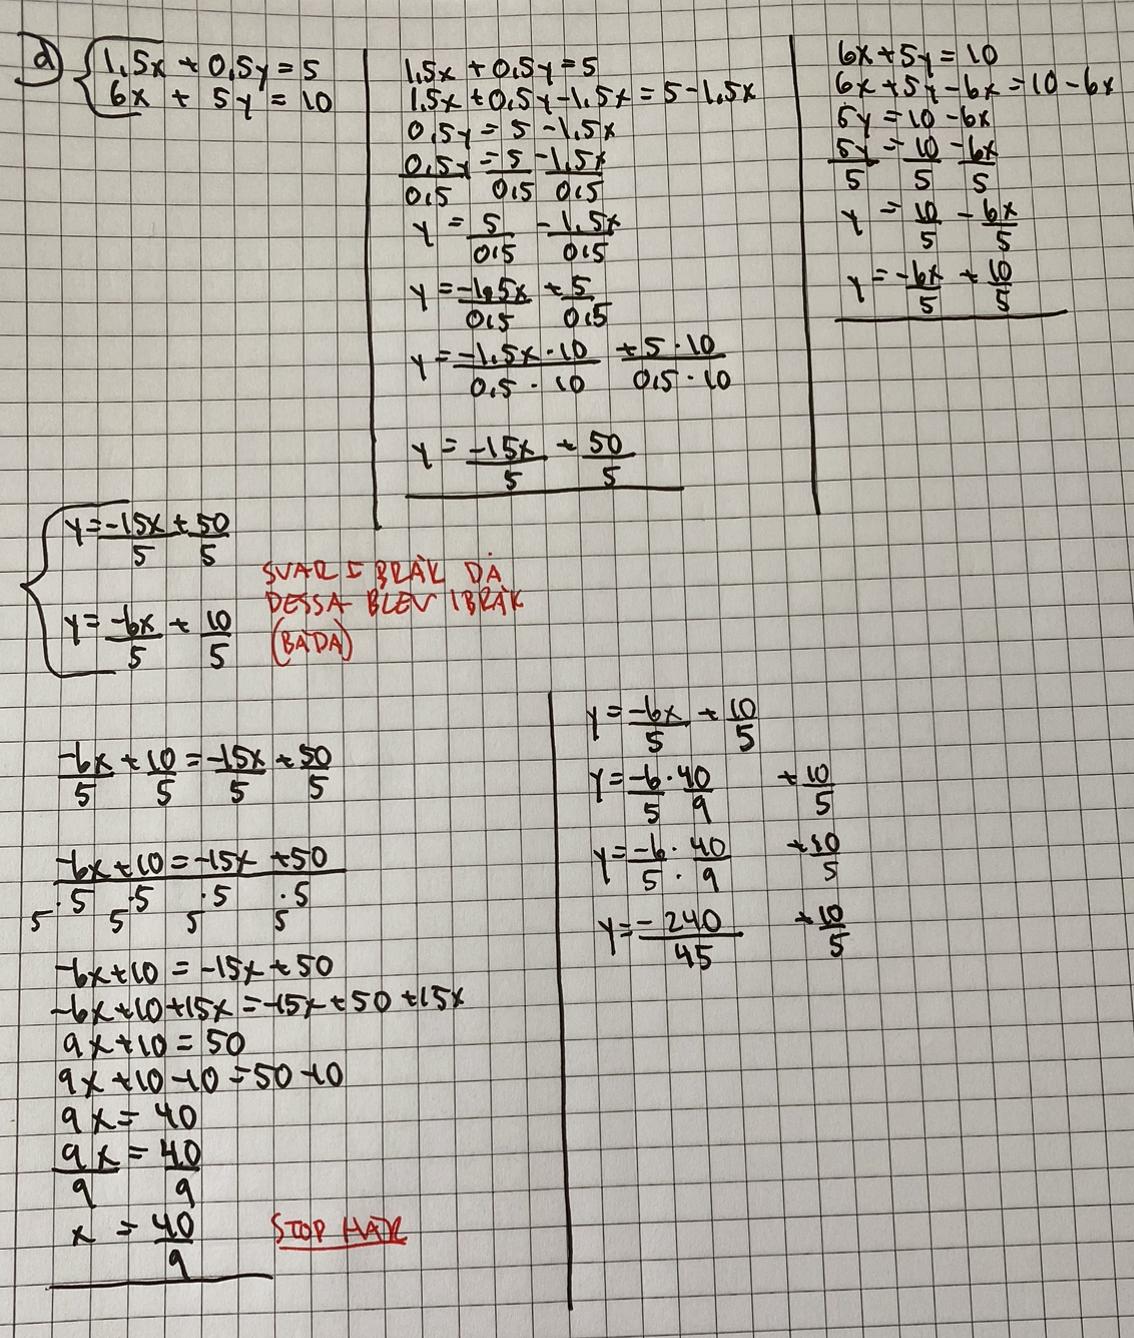 a) {1,5x + 0,5y = 5
6x + 5y = 10
1,5x + 0,5y = 5
1,5x + 0,5y - 1,5x = 5 - 1,5x
0,5y = 5 - 1,5x
0,5y/0,5 = 5/0,5 - 1,5x/0,5
y = 5/0,5 - 1,5x/0,5
y = -1,5x/0,5 + 5/0,5
y = -1,5x · 10/0,5 · 10 + 5 · 10/0,5 · 10
y = -15x/5 + 50/5
6x + 5y = 10
6x + 5y - 6x = 10 - 6x
5y = 10 - 6x
5y/5 = 10/5 - 6x/5
y = 10/5 - 6x/5
y = -6x/5 + 10/5
{y = -15x/5 + 50/5
y = -6x/5 + 10/5
SVAR I BRÅK DÅ
DESSA BLEV I BRÅK
(BÅDA)
-6x/5 + 10/5 = -15x/5 + 50/5
-6x + 10 = -15x + 50
· 5 · 5 · 5 · 5
5 5 5 5
-6x + 10 = -15x + 50
-6x + 10 + 15x = -15x + 50 + 15x
9x + 10 = 50
9x + 10 - 10 = 50 - 10
9x = 40
9x/9 = 40/9
x = 40/9
STOP HÄR
y = -6x/5 + 10/5
y = -6/5 · 40/9 + 10/5
y = -6 · 40/5 · 9 + 10/5
y = -240/45 + 10/5